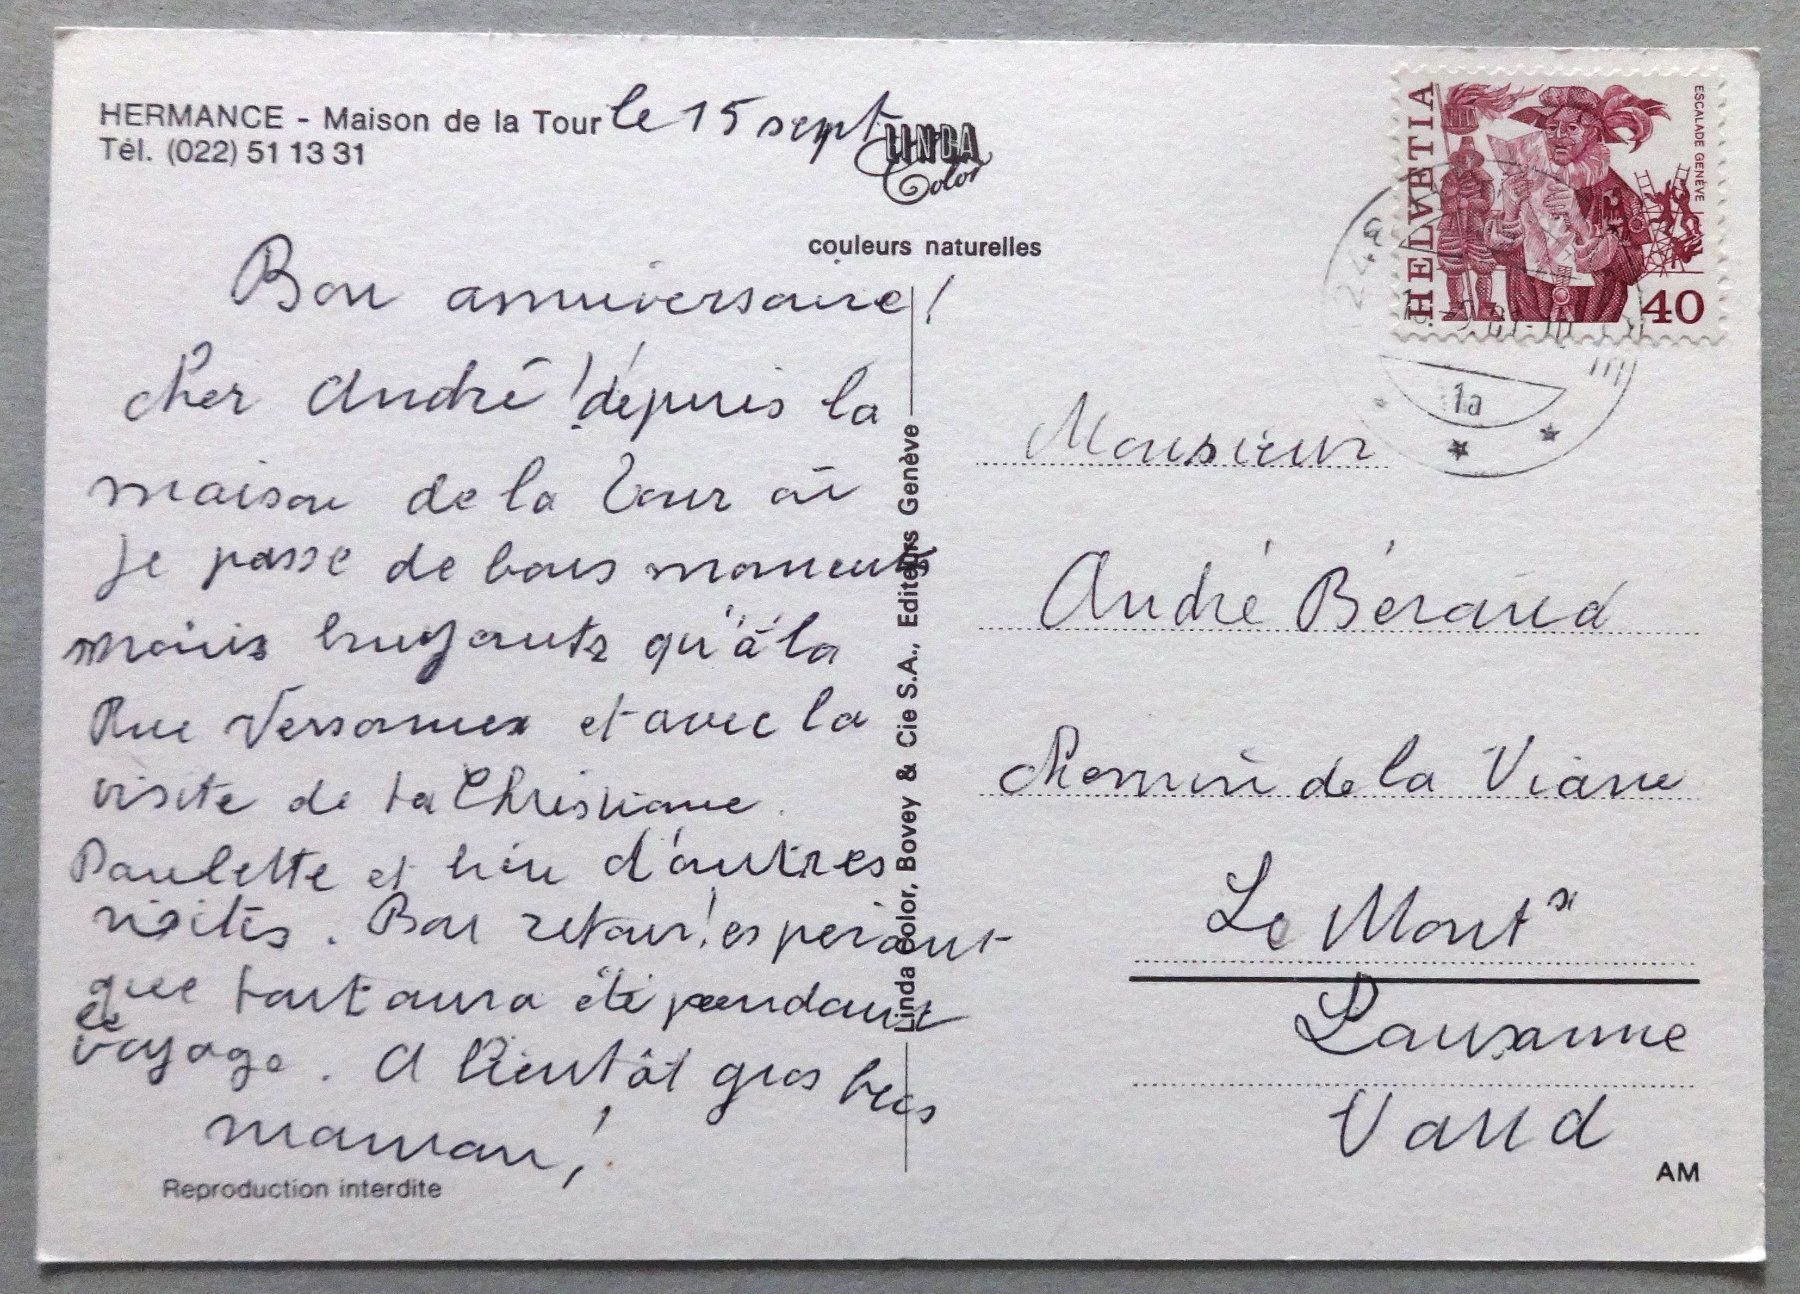 HERMANCE - Maison de la Tour
Tél. (022) 51 13 31
le 15 sept
LINDA
Color
couleurs naturelles
Bon anniversaire!
Cher André! depuis la
maison de la Tour où
je passe de bons moments
moins bruyants qu'à la
Rue Versonnex et avec la
visite de ta Christiane.
Paulette et bien d'autres
visites. Bon retour! espérant
que tout aura été pendant
ce
voyage. A bientôt gros becs
maman!
Reproduction interdite
Linda Color, Bovey & Cie S.A., Editeurs Genève
HELVETIA
ESCALADE GENÈVE
40
1a
Monsieur
André Béraud
Chemin de la Viane
Le Mont s/
Lausanne
Vaud
AM